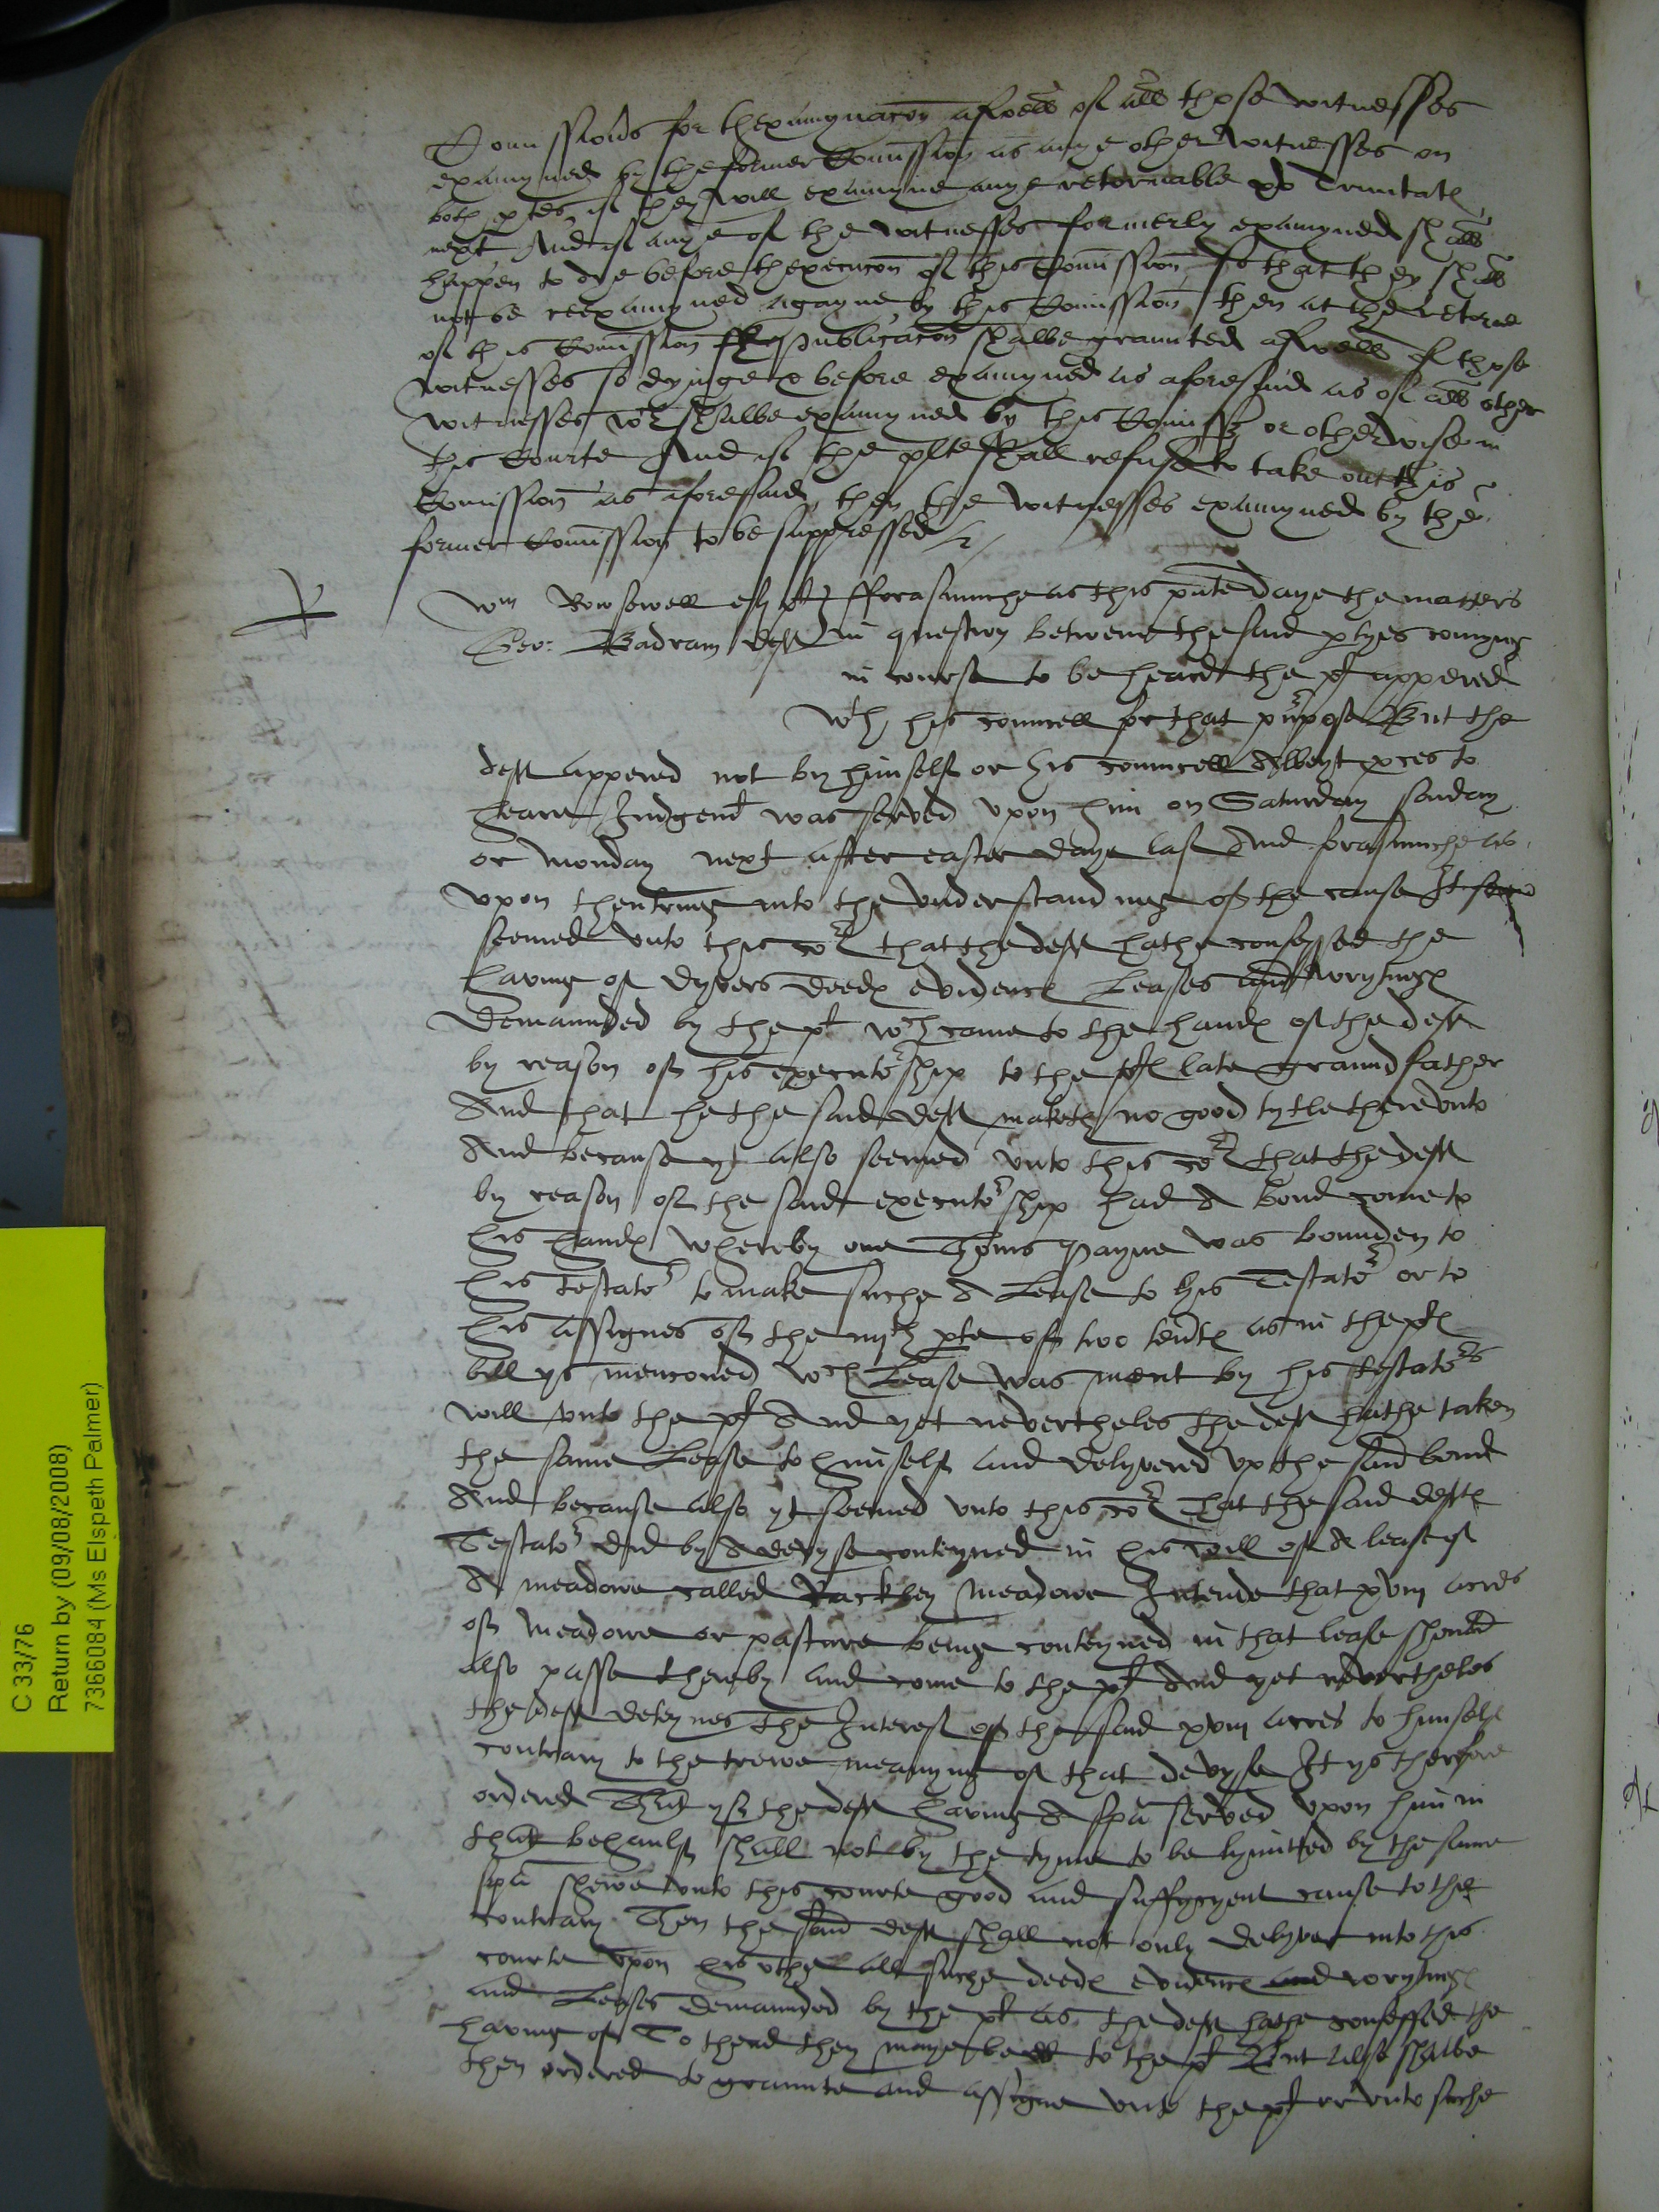 Comissions for thexamynacon aswell of all those witnesses
examyned by the former Comission as anye other witnesses on
both ptes if they will examyne anye retornable xv Trinitatis
next And if anye of the witnesses formerly examyned shall
happen to dye before thexecucon of this Comission so that they shall
not be reexamyned agayne by this Comission then at the retorne
of this Comission publicacon shalbe graunted aswell of those
witnesses so dyinge & before examyned as aforesaid as of all other
witnesses wch shalbe examyned by this Comission or otherwise in
this Courte And if the plte shall refuse to take out this
Comission as aforesaid then the witnesses examyned by the
former Comission to be suppressed
Wm Rowsewell esq plt fforasmuche as this pnte daye the matters
Geo: Badram deft in question betwene the said ptyes coming
in course to be heard the plt appered
wth his councell for that purpose But the
deft appered not by himself or his councell Albeyt proces to
heare Judgemt was served upon him on Saturday sonday
or monday next after easter daye last And forasmuche as
upon thentring into the understanding of the cause It seem
seemed unto this cort that the deft hathe confessed the
having of dyvers deedes evidences Leases and wrytinges
demaunded by the plt wch came to the handes of the deft
by reason of his executorship to the pltes late graundfather
And that he the said deft maketh no good tytle thereunto
And because yt also seemed unto this cort that the deft
by reason of the said executorship had A bond come to
his handes whereby one Thoms Payne was bounden to
his testator to make suche A Lease to his Testator or to
his assignes of the iiijth pte of two tentes as in the pltes
bill ys mencioned wch Lease was ment by his testators
will unto the plt And yet nevertheles the deft hathe taken
the same Lease to himself and delyvered up the said bond
And because also yt seemed unto this cort That the said deftes
Testator did by A devyse conteyned in his will of A lease of
A meadowe called Rackley meadowe Intende that xviij acres
of meadowe or pasture being conteyned in that lease should
also passe thereby and come to the plt And yet nevertheles
the deft deteynes the Interest of the said xviij acres to himself
contrary to the trewe meanying of that devyse It ys therefore
ordered That yf the deft having A spa served upon him in
that behaulf shall not by the tyme to be lymitted by the same
spa shewe unto this courte good and suffycyent cause to the
contrary Then the said deft shall not only delyver into this
courte upon his othe all suche deedes evidences and wrytinges
and Leases demaunded by the plt as the deft hathe confessed the
having of To thend they maye be dd to the plt But also shalbe
then ordered to graunte and assigne unto the plt or unto suche
C 33/76
Return by (09/08/2008)
7366084 (Ms Elspeth Palmer)